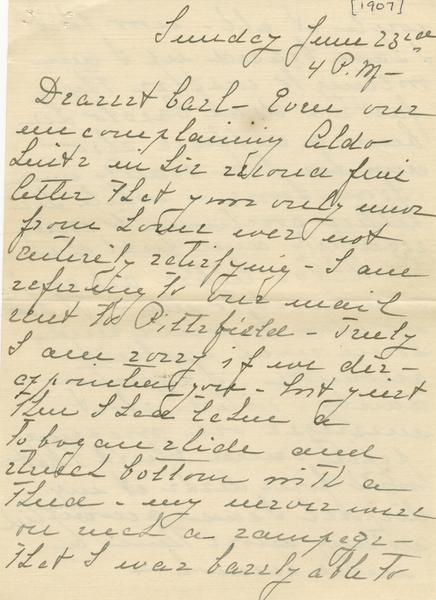 [1907]
Sunday June 23rd
4 P.M-
Dearest Carl- Even our
uncomplaining Aldo
hints in his second fine
letter that your only news
from home was not
entirely satisfying - I am
refering to our mail
sent to Pittsfield - Truly
I am sorry if we dis-
appointed you - but just
then I had taken a
toboggan slide and
struck bottom with a
thud - my nerves were
on such a rampage -
that I was barely able to